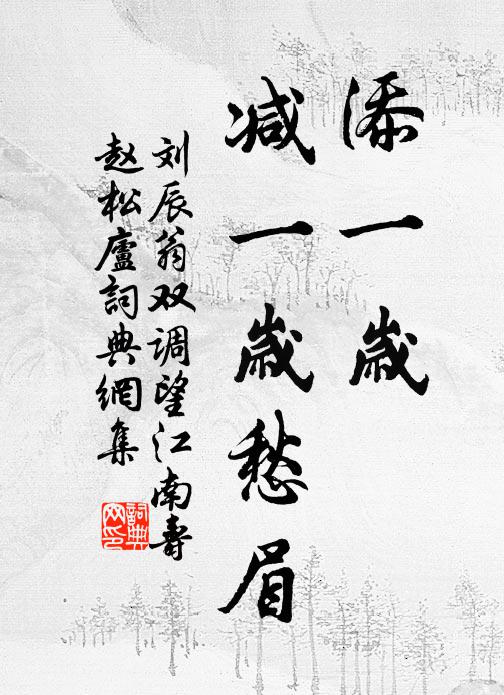 添一歲
減一歲愁眉
刘辰翁双调望江南壽
赵松廬詞典網集
詞典网印